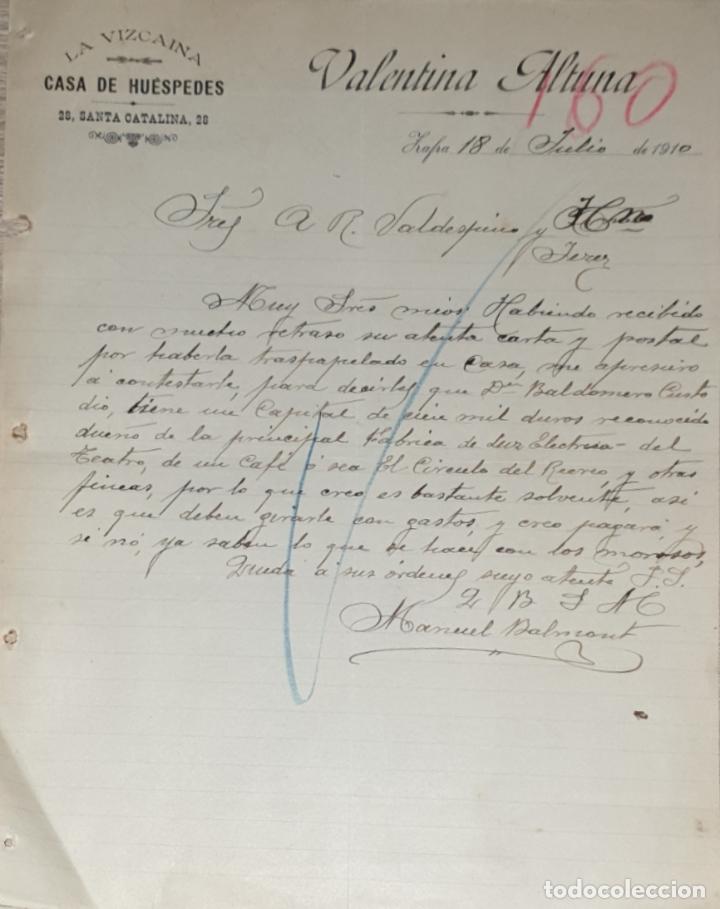 LA VIZCAINA
CASA DE HUÉSPEDES
28, SANTA CATALINA, 28
Valentina Altuna
160
Zafra 18 de Julio de 1910
Sres A R. Valdespino y Hno
Jerez
Muy Sres mios Habiendo recibido
con mucho retraso su atenta carta y postal
por haberla traspapelado en casa, me apresuro
á contestarle, para decirles que Dn Baldomero Custo
dio, tiene un Capital de cien mil duros reconocido
dueño de la principal Fabrica de Luz Electrica del
Teatro, de un Café ó sea El Circulo del Recreo, y otras
fincas, por lo que creo es bastante solvente, asi
es que deben girarle con gastos, y creo pagará, y
si nó, ya saben lo que se hace con los morosos,
Queda a sus órdenes suyo atento S. S.
Q B S M
Manuel Balmont
todocoleccion.net